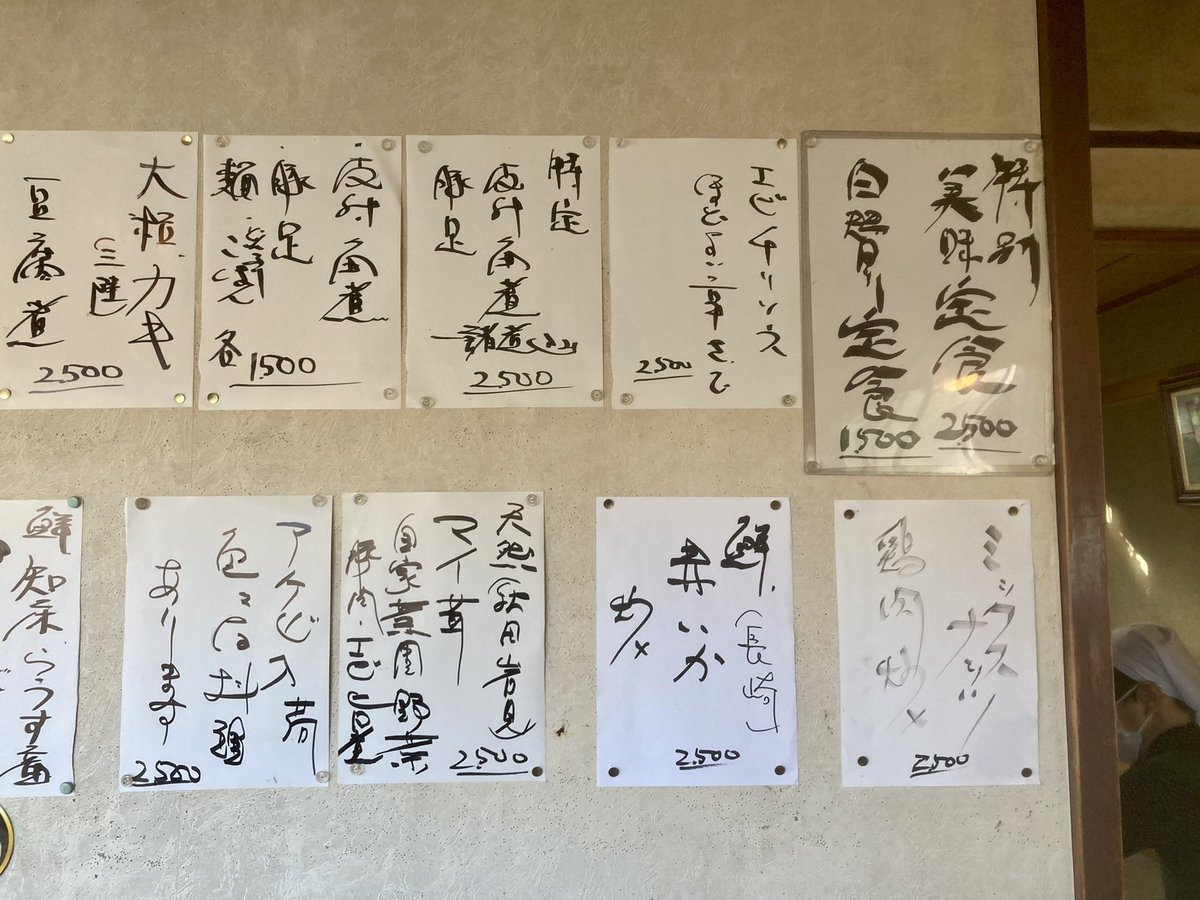 特別
美味定食
2500
自慢り定食
1500
エビチリソス
ほどよい辛さで
2500
特定
皮付角煮
豚足
諸煮込
2500
皮付角煮
豚足
麺
各
1500
大粒カキ
(三陸)
豆腐煮
2500
ミックスナッツ
鶏肉炒メ
2500
鮮(長崎)
井いか
炒メ
2500
天然秋田岩見
マイ茸
自家菜園野菜
豚肉・エビ
2500
アケビ入荷
色々な料理
あります
2500
鮮知床らうす産